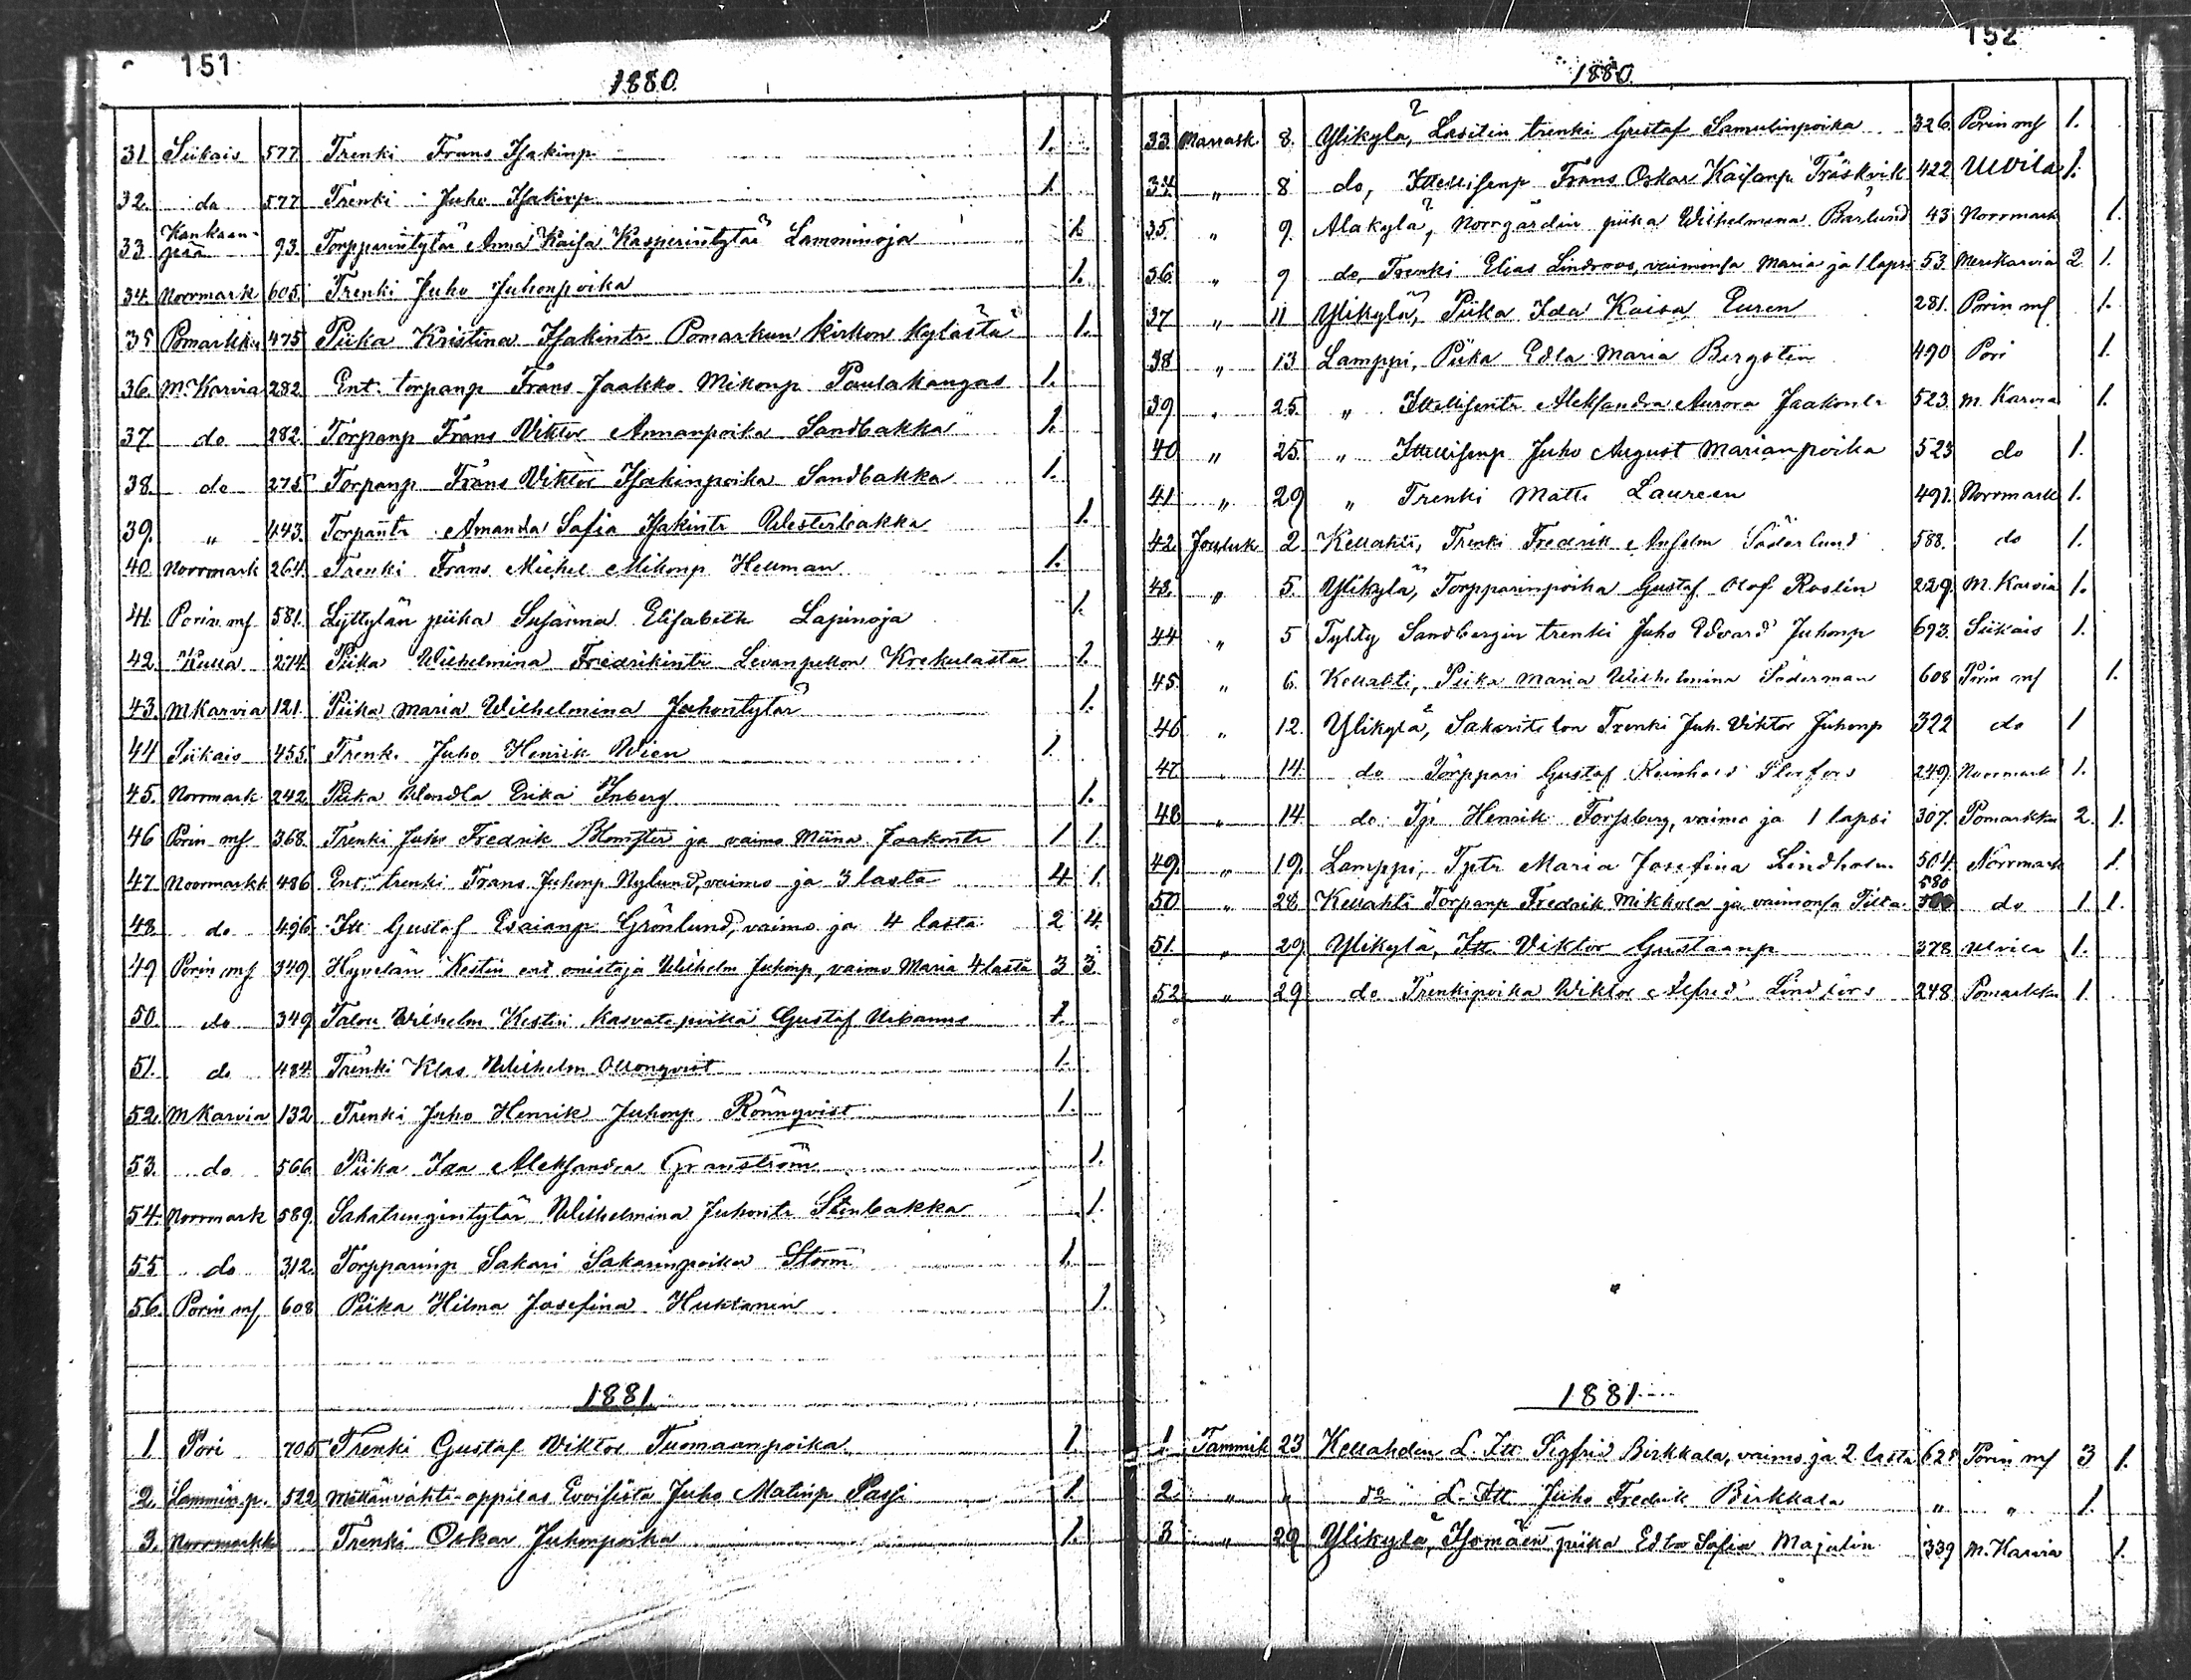 151
1880.
31. Siikais 577 Trenki Frans Isakinp 1.
32. do 577 Trenki Juho Isakinp 1.
33. Kankaanpää 93. Torpparintytär Anna Kaisa Kasperintytär Lamminoja 1.
34. Norrmark 605. Trenki Juho Juhonpoika 1.
35 Pomarkku 475 Piika Kristina Isakintr Pomarkun kirkon kylästä 1.
36. M. Karvia 282. Ent. torpanp Frans Jaakko Mikonp Paulakangas 1.
37 do 282. Torpanp Frans Viktor Annanpoika Sandbakka 1.
38. do 275 Torpanp Frans Viktor Isakinpoika Sandbakka 1.
39. " 443. Torpantr Amanda Sofia Isakintr Westerbakka 1.
40 Norrmark 264. Trenki Frans Michel Mikonp Hellman 1.
41. Porin mf 581. Lyttylän piika Susanna Elisabeth Lapinoja 1.
42. Kulla 274. Piika Wilhelmina Fredrikintr Levanpellon Krekulasta 1.
43. MKarvia 121. Piika Maria Wilhelmina Juhontytär 1.
44 Siikais 455. Trenki Juho Henrik Wien 1.
45. Norrmark 242. Piika Wendla Erika Inberg 1.
46 Porin mf 368. Trenki Juho Fredrik Blomster ja vaimo Miina Jaakontr 1 1.
47 Noormarkk 486 Ent. trenki Frans Juhonp Nylund, vaimo ja 3 lasta 4 1.
48. do 496. Itt Gustaf Esaianp Grönlund, vaimo ja 4 lasta 2 4.
49 Porin mf 349. Hyvelän Kestin ent omistaja Wilhelm Juhonp, vaimo Maria 4 lasta 3 3.
50. do 349 Talou Wilhelm Kestin kasvatepoika Gustaf Urbanus 1.
51. do 484. Trenki Klas Wilhelm Ollonqvist 1.
52. MKarvia 132 Trenki Juho Henrik Juhonp Rönnqvist 1.
53. do 566 Piika Ida Aleksandra Granström 1.
54. Norrmark 589. Sahatrengintytär Wilhelmina Juhontr Stenbakka 1.
55 do 312. Torpparinp Sakari Sakarinpoika Storm 1.
56. Porin mf 608 Piika Hilma Josefina Huktanen 1.
1881.
1. Pori 705 Trenki Gustaf Viktor Tuomaanpoika 1.
2. Lammin.p. 522 Mettänvahti-oppilas Evoisista Juho Matinp Passi 1.
3. Norrmarkk Trenki Oskar Juhonpoika 1.
152
1880.
33. Marrask. 8. Ylikylä, Lasitin trenki Gustaf Samulinpoika 326. Porin mf 1.
34. " 8 do, Ittellisenp Frans Oskar Kaisanp Träskvik 422 Ulvila 1.
35. " 9. Alakylä, Norrgårdin piika Wilhelmina Barlund 43 Norrmark 1.
36. " 9 do, Trenki Elias Lindroos, vaimonsa Maria ja 1 lapsi 53. Merikarvia 2 1.
37 " 11 Ylikylä, Piika Ida Kaisa Euren 281. Porin mf 1.
38 " 13 Lamppi, Piika Edla Maria Bergsten 490 Pori 1.
39 " 25. " Ittellisentr Aleksandra Aurora Jaakontr 523. M. Karvia 1.
40 " 25. " Ittellisenp Juho August Marianpoika 523 do 1.
41 " 29 " Trenki Matti Laureen 491. Norrmark 1.
42 Jouluk 2 Kellahti, Trenki Fredrik Anselm Söderlund 588. do 1.
43. " 5. Ylikylä, Torpparinpoika Gustaf Olof Roslin 229. M. Karvia 1.
44 " 5 Tylty Sandbergin trenki Juho Edvard Juhonp 693. Siikais 1.
45 " 6. Kellahti, Piika Maria Wilhelmina Söderman 608 Porin mf 1.
46 " 12. Ylikylä, Sakaritalon Trenki Juh. Viktor Juhonp 322 do 1
47 " 14 do Torppari Gustaf Reinhold 249. Norrmark 1.
48 " 14 do Tp Henrik Forssberg, vaimo ja 1 lapsi 307. Pomarkku 2. 1.
49. " 19. Lamppi, Tptr Maria Josefina Lindholm 504. Norrmark 1.
50 " 28 Kellahti Torpanp Fredrik Mikkola ja vaimonsa 580 do 1. 1.
51. " 29 Ylikylä, Itt. Viktor Gustaanp 378 Ulvila 1.
52 " 29 do Trenkipoika Wiktor Alfred Lindfors 248 Pomarkku 1.
1881.
1. Tammik 23 Kellahden L. Itt. Sigfrid Birkkala, vaimo ja 2 lasta 628 Porin mf 3 1.
2. " " do L. Itt Juho Fredrik Birkkala " " 1.
3 " 29 Ylikylä, Isomäen piika Edla Sofia Majalin 339 M. Karvia 1.